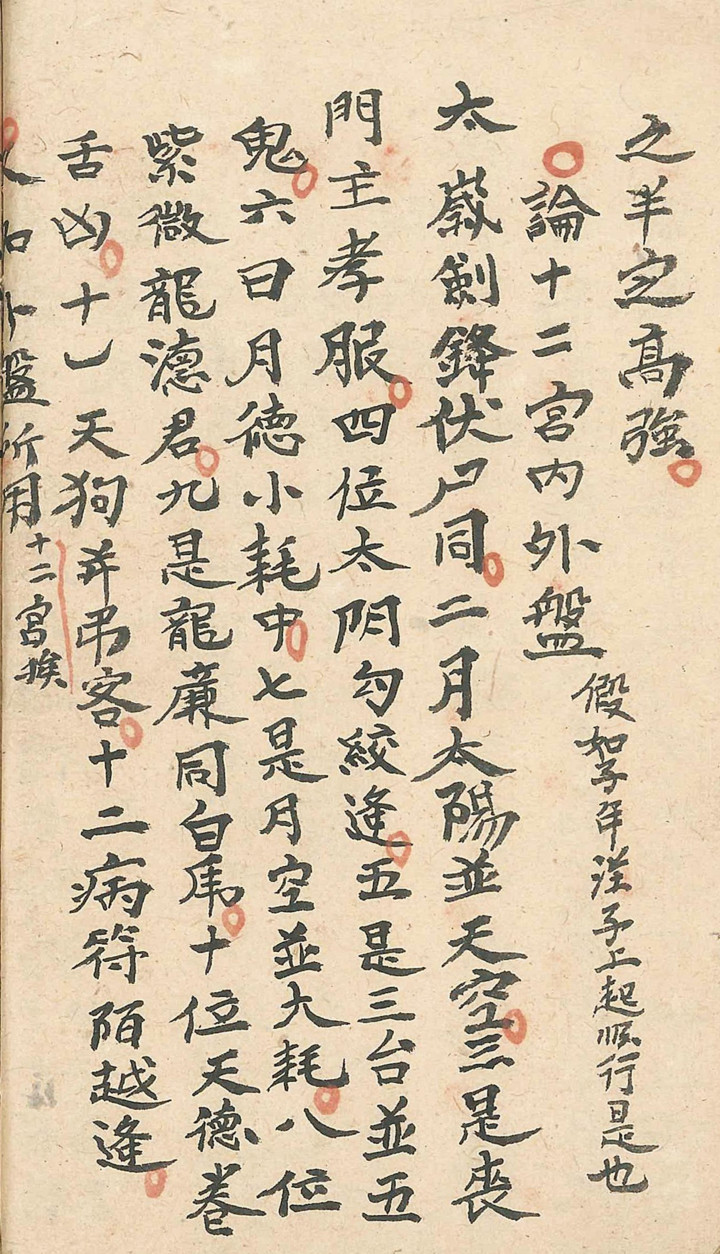 之半定高強
論十二宮內外盤
假如子年從子上起順行是也
太歲劍鋒伏尸同二月太陽並天空三是喪
門主孝服四位太阴勾絞逢五是三台並五
鬼六日月德小耗中七是月空並大耗八位
紫微龍德君九是龍廉同白虎十位天德卷
舌凶十一天狗并吊客十二病符陌越逢
盤所用
十二宮